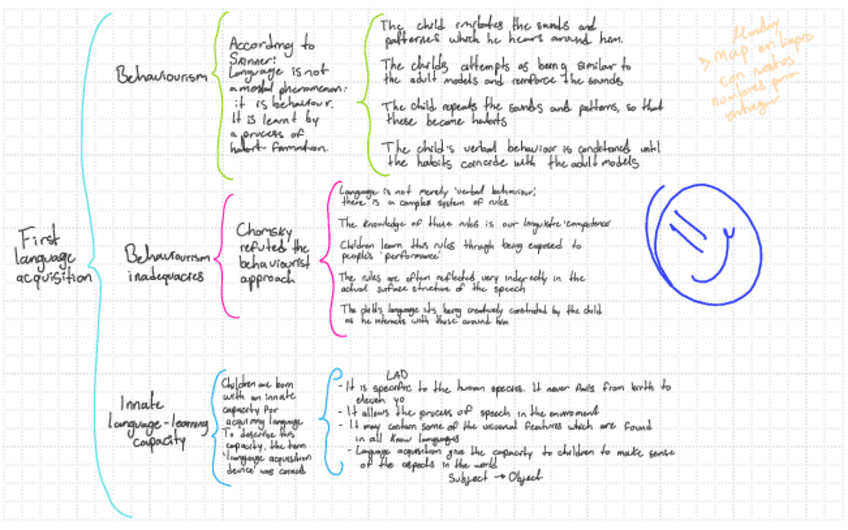 First
language
acquisition
Behaviourism
According to
Skinner:
Language is not
a mental phenomenon:
it is behaviour.
It is learnt by
a process of
habit-formation.
The child imitates the sounds and
patternes which he hears around him.
The child's attempts as being similar to
the adult models and reinforce the sounds
The child repeats the sounds and patterns, so that
these become habits
The child's verbal behaviour is conditioned until
the habits coincide with the adult models
Monday
> Map en limpio
con
nombres
entregar
Behaviourism
inadequacies
Chomsky
refuted the
behaviourist
approach
Language is not merely 'verbal behaviour',
there is a complex system of rules
The knowledge of these rules is our linguistic 'competence'
Children learn this rules through being exposed to
people's 'performance'
The rules are often reflected very indirectly in the
actual surface structure of the speech
The child's language its being creatively constructed by the child
as he interacts with those around him
Innate
language-learning
capacity
Children are born
with an innate
capacity for
acquiring language
To describe this
capacity, the term
'language acquisition
device' was coined
LAD
- It is specific to the human species. It never fails from birth to
eleven yo
- It allows the process of speech in the enviroment
- It may contain some of the universal features which are found
in all know languages
- Language acquisition give the capacity to children to make sense
of the aspects in the world
Subject → Object